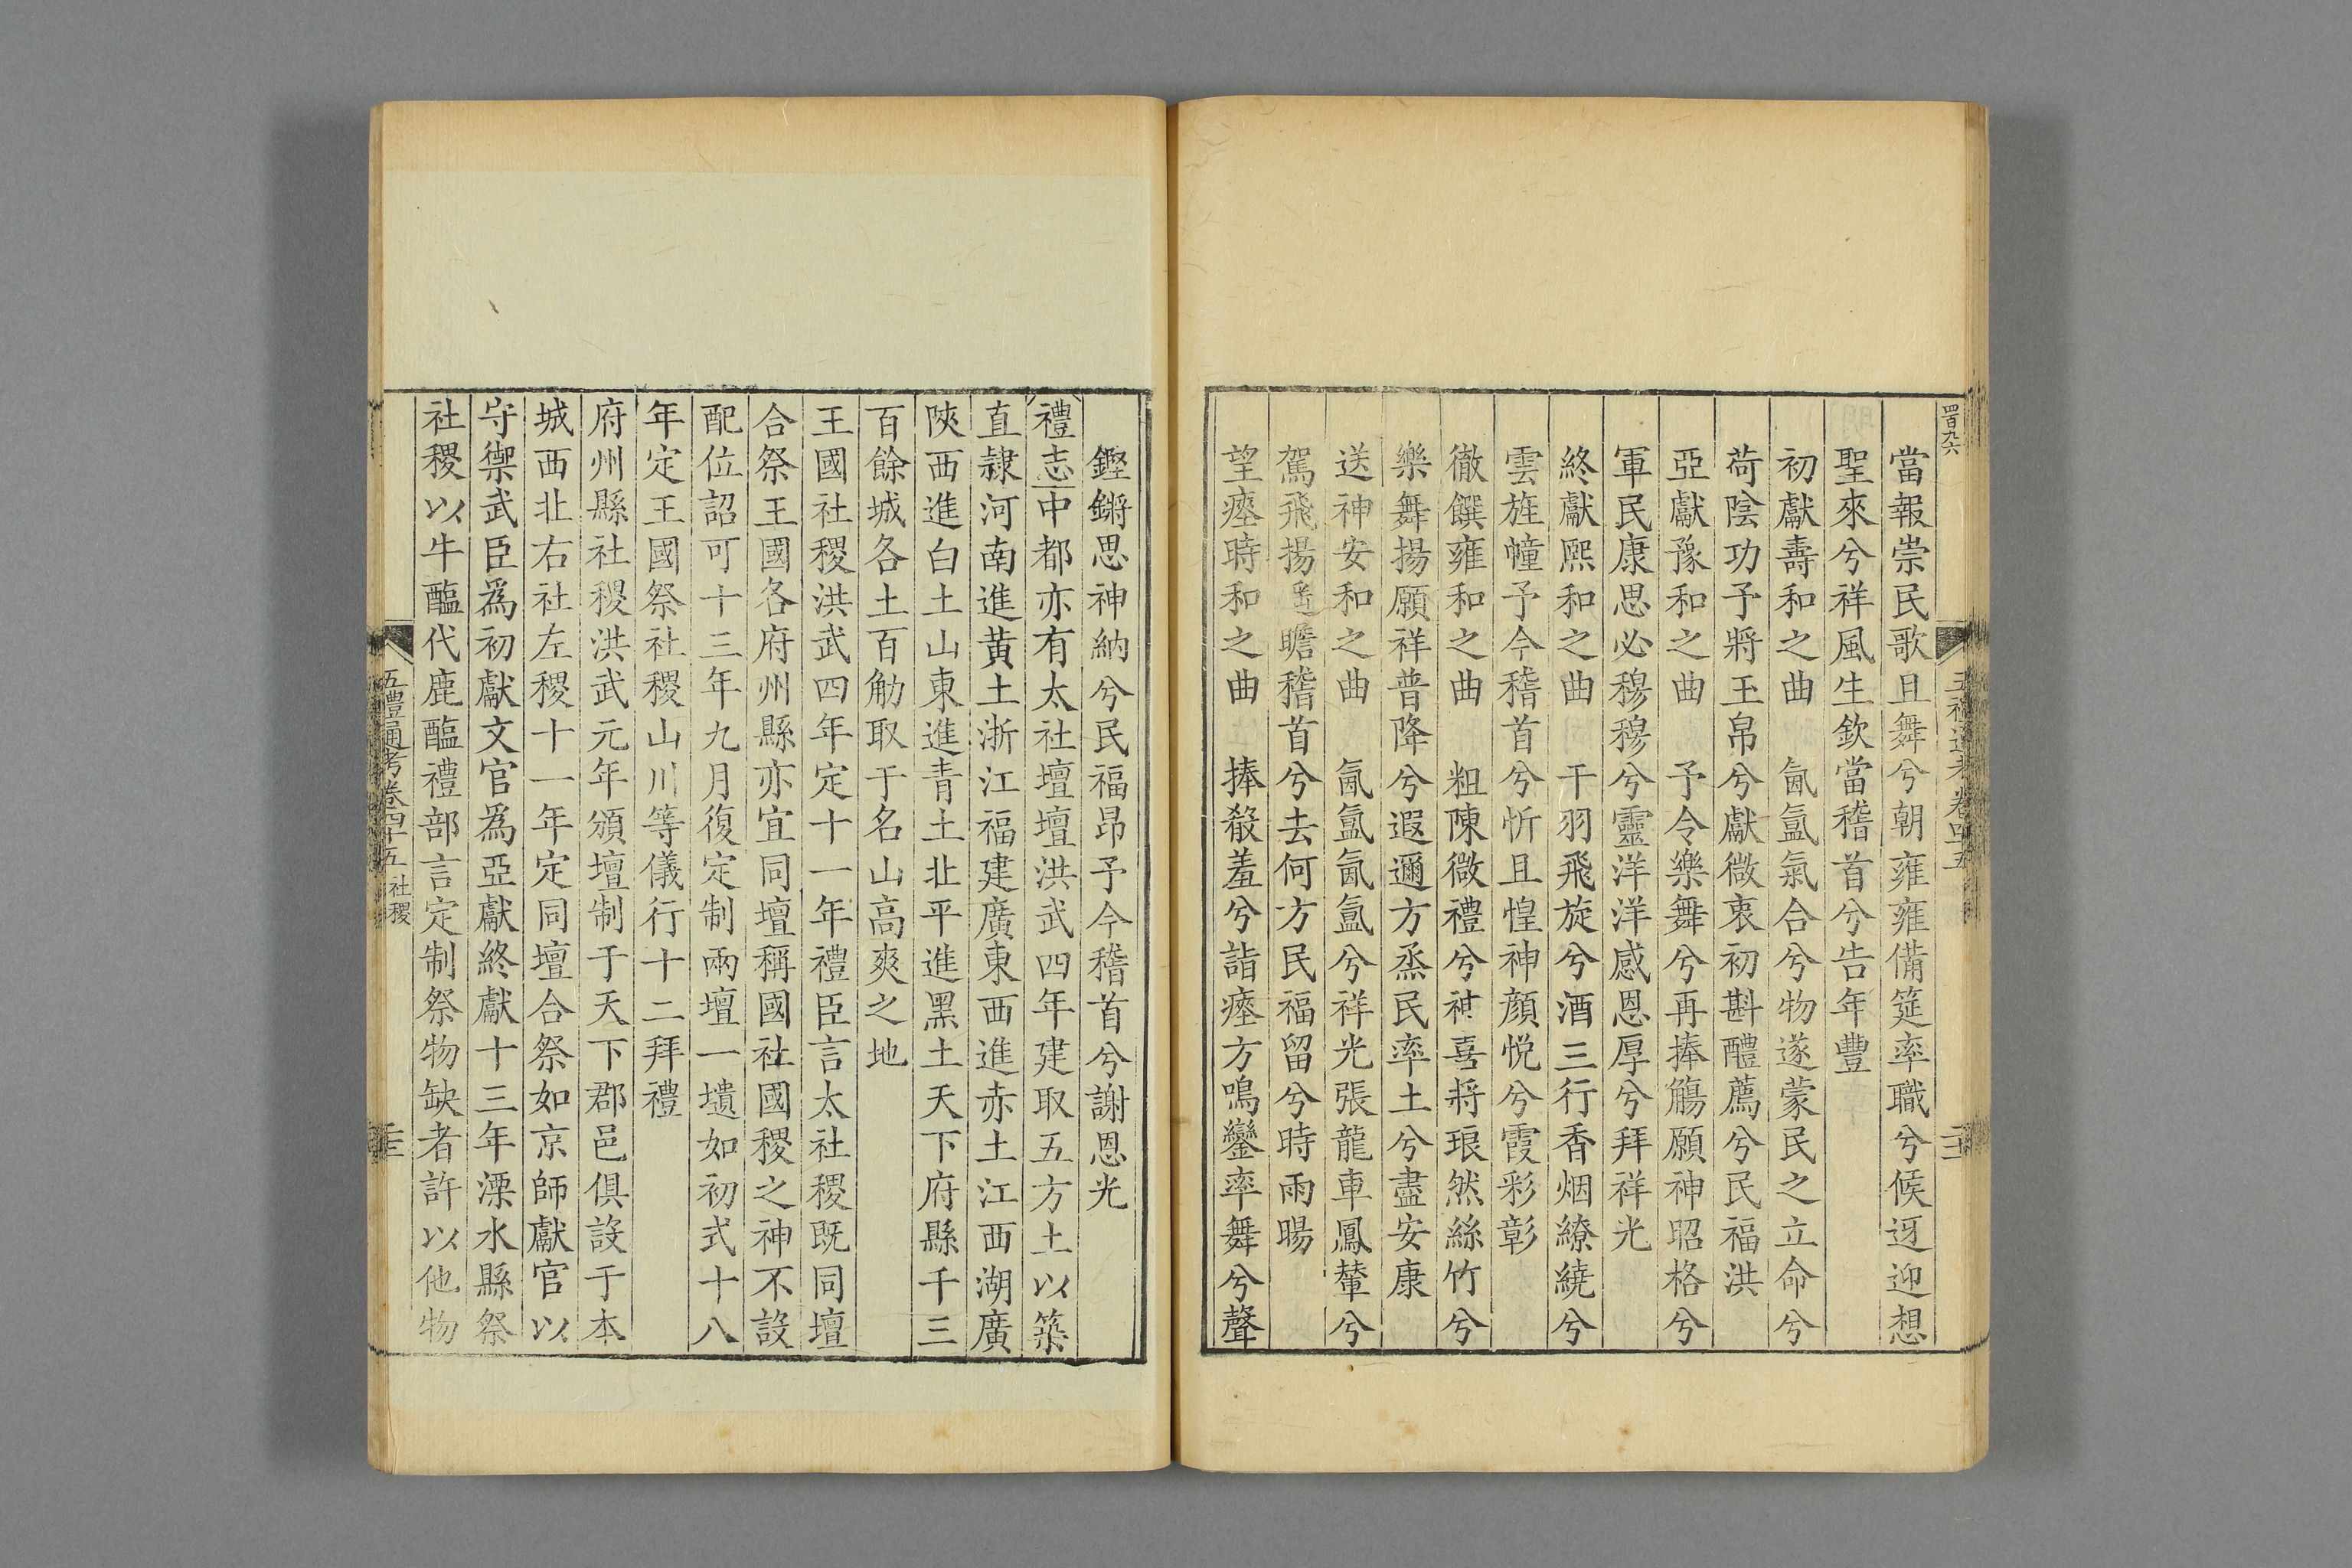 四百九六
當報崇民歌且舞兮朝雍雍備筵率職兮候迓迎想
聖來兮祥風生欽當稽首兮告年豐
初獻壽和之曲　氤氳氣合兮物遂蒙民之立命兮
荷陰功予將玉帛兮獻微衷初斟醴薦兮民福洪
亞獻豫和之曲　予令樂舞兮再捧觴願神昭格兮
軍民康思必穆穆兮靈洋洋感恩厚兮拜祥光
終獻熙和之曲　干羽飛旋兮酒三行香烟繚繞兮
雲旌幢予今稽首兮忻且惶神顏悅兮霞彩彰
徹饌雍和之曲　粗陳微禮兮神喜將琅然絲竹兮
樂舞揚願祥普降兮遐邇方烝民率土兮盡安康
送神安和之曲　氤氳氤氳兮祥光張龍車鳳輦兮
駕飛揚遙瞻稽首兮去何方民福留兮時雨暘
望瘞時和之曲　捧殽羞兮詣瘞方鳴鑾率舞兮聲
鏗鏘思神納兮民福昂予今稽首兮謝恩光
禮志中都亦有太社壇壇洪武四年建取五方土以築
直隷河南進黄土浙江福建廣東西進赤土江西湖廣
陜西進白土山東進青土北平進黑土天下府縣千三
百餘城各土百觔取于名山高爽之地
王國社稷洪武四年定十一年禮臣言太社稷既同壇
合祭王國各府州縣亦宜同壇稱國社國稷之神不設
配位詔可十三年九月復定制兩壇一壝如初式十八
年定王國祭社稷山川等儀行十二拜禮
府州縣社稷洪武元年頒壇制于天下郡邑俱設于本
城西北右社左稷十一年定同壇合祭如京師獻官以
守禦武臣爲初獻文官爲亞獻終獻十三年溧水縣祭
社稷以牛醢代鹿醢禮部言定制祭物缺者許以他物
五禮通考卷四十五 社稷